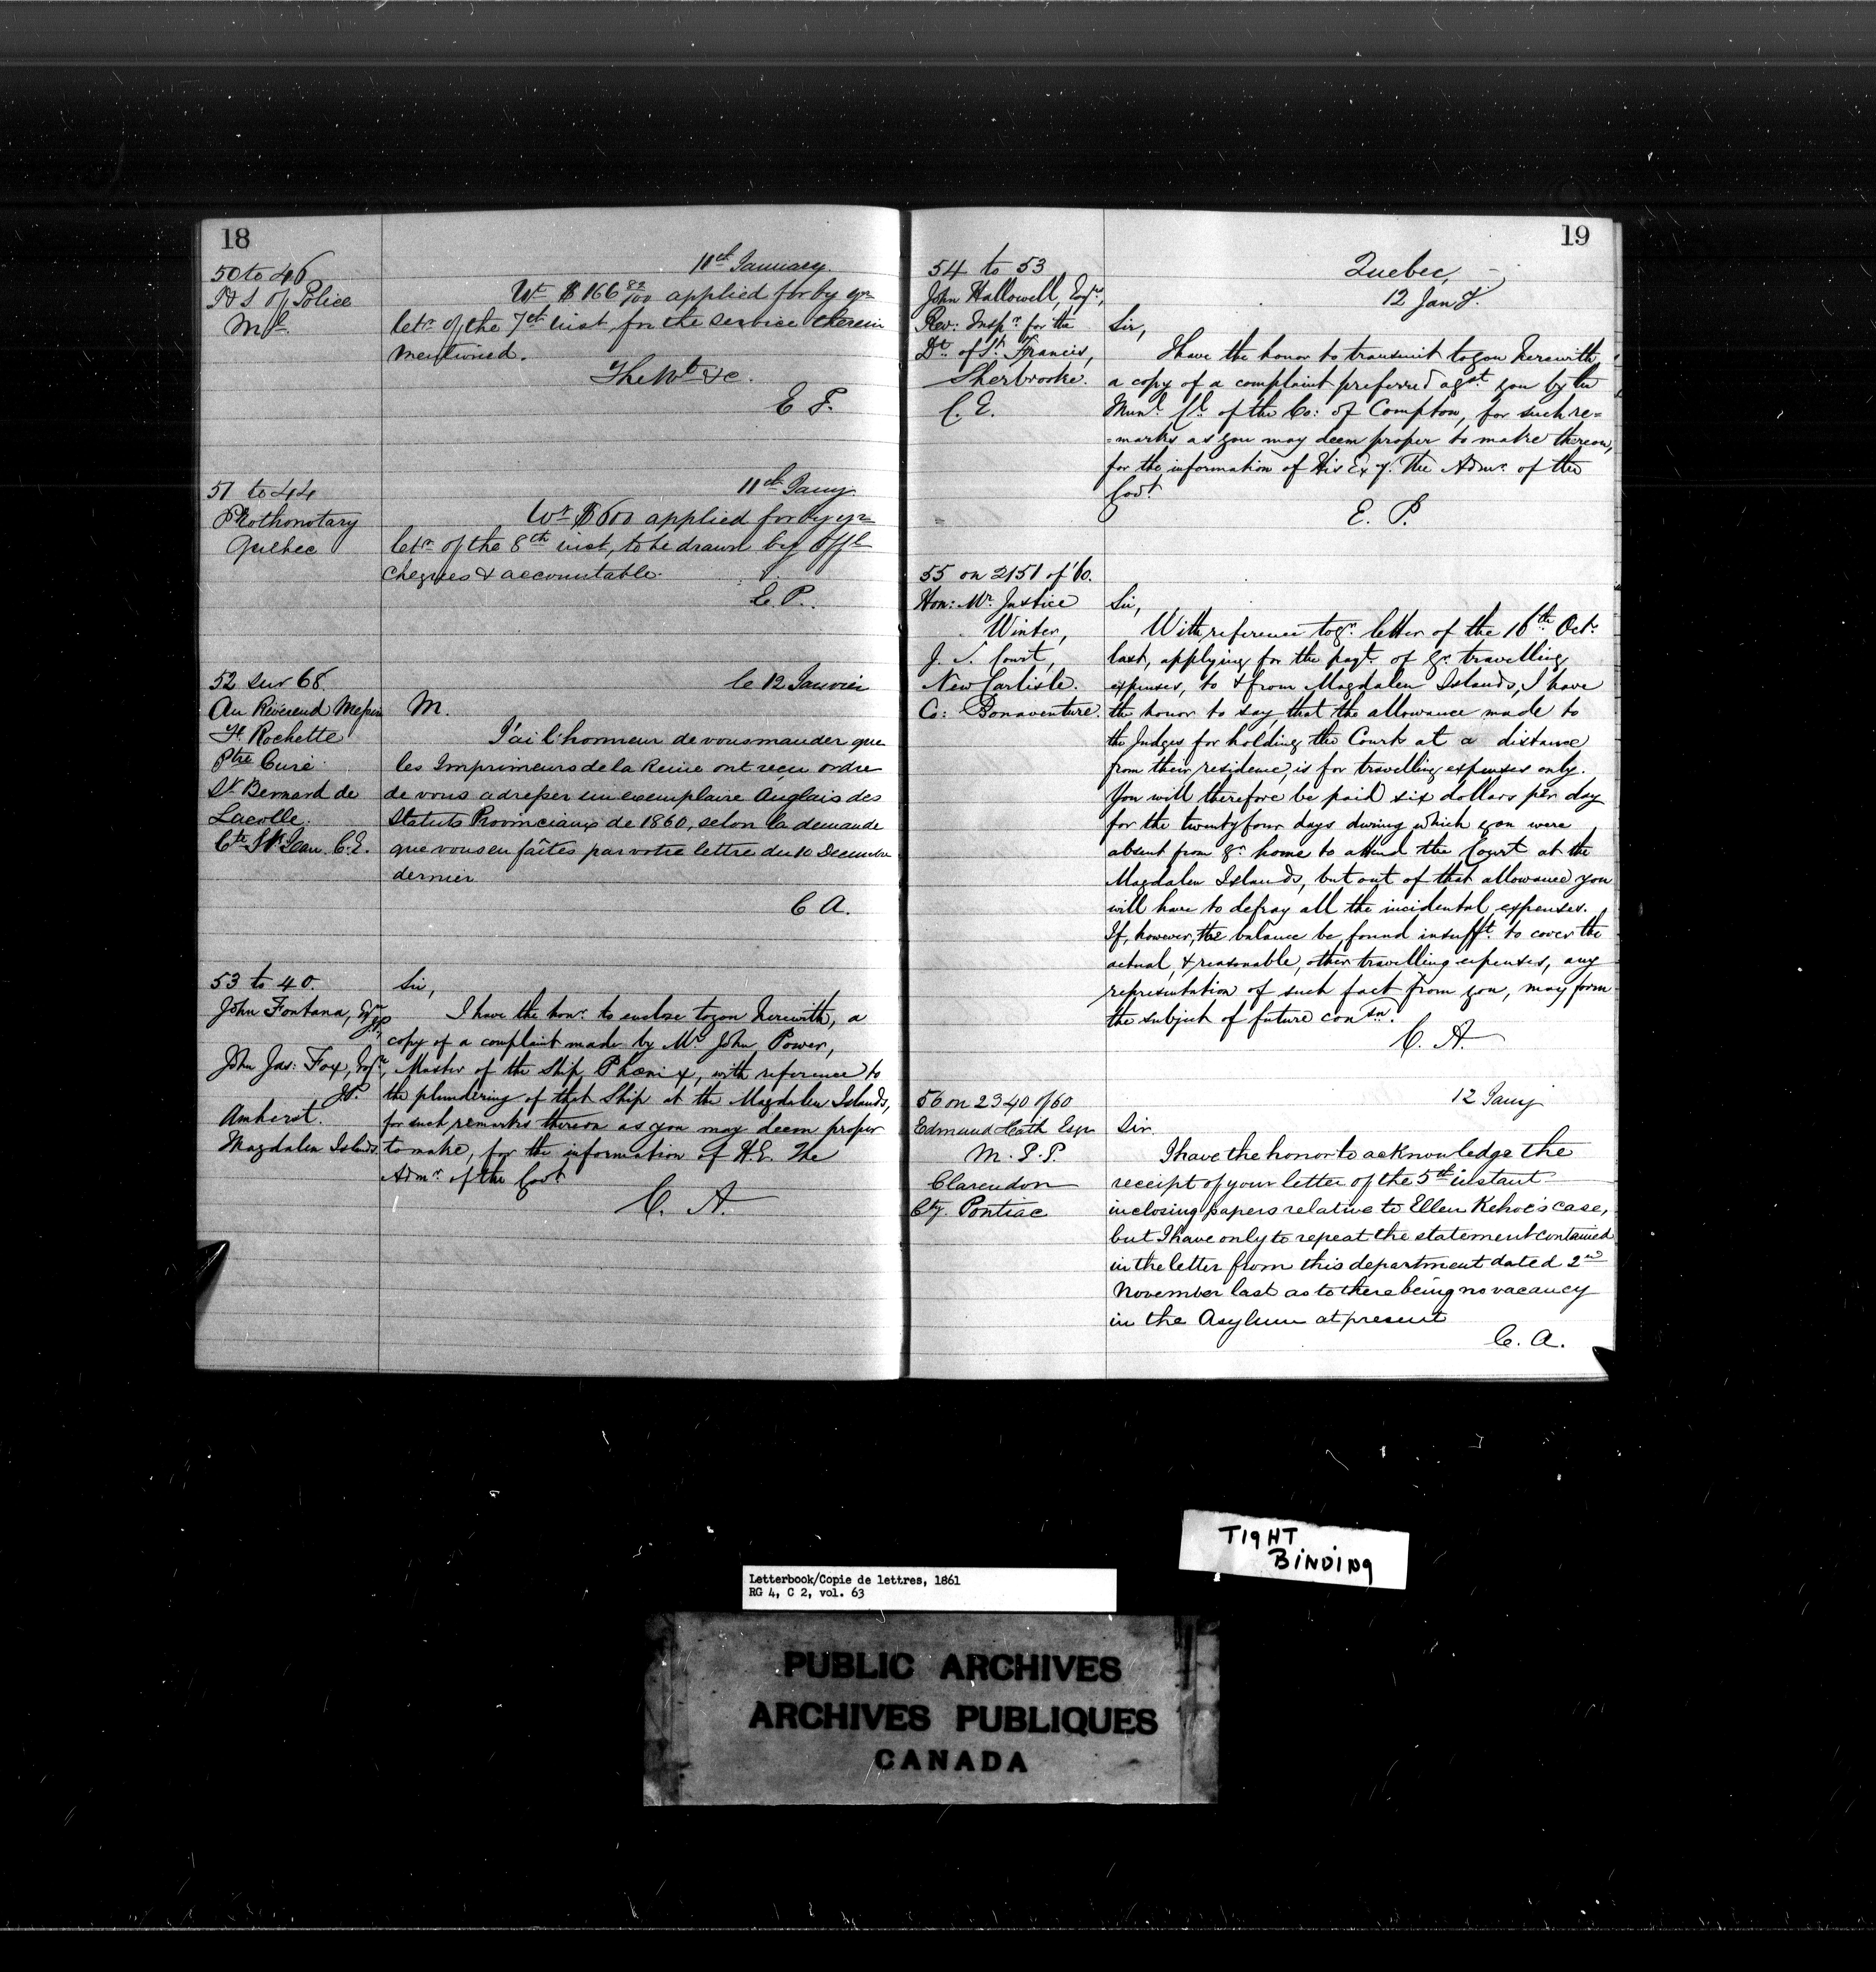 18
50 to 46
I & S of Police
Ml
11th January
Wt $166 82/100 applied for by yr
letr of the 7th inst, for the service therein
mentioned.
The Wt &c.
E P.
51 to 44
Prothonotary
Quebec
11th Jany
Wt $600 applied for by yr
letr of the 8th inst, to be drawn by offl
cheques & accountable.
E. P.
52 sur 68
le 12 Janvier
Au Révérend Messire
Ft Rochette
Ptre Curé
St Bernard de
Lacolle.
Cte St Jean C.E.
M.
J'ai l'honneur de vous mander que
les Imprimeurs de la Reine ont reçu ordre
de vous adresser un exemplaire Anglais des
Statuts Provinciaux de 1860, selon la demande
que vous en faîtes par votre lettre du 10 Decembre
dernier
C A.
53 to 40.
John Fontana, Esqr
JP.
John Jas: Fox, Esqr,
JP.
Amherst.
Magdalen Islands.
Sir,
I have the honr. to enclose to you herewith, a
copy of a complaint made by Mr John Power,
Master of the Ship Phœnix, with reference to
the plundering of that Ship at the Magdalen Islands,
for such remarks thereon as you may deem proper
to make, for the information of H.E. The
Admr. of the Govt
C. A.
19
54 to 53
John Hallowell, Esqr,
Rev: Inspr. for the
Dt. of St. Francis,
Sherbrooke.
C. E.
Quebec,
12 Jany.
Sir,
I have the honor to transmit to you herewith,
a copy of a complaint preferred agst. you by the
Munl. Cl. of the Co: of Compton, for such re=
=marks as you may deem proper to make thereon,
for the information of His Exy. The Admr. of the
Govt.
E. P.
55 on 2151 of '60.
Hon: Mr. Justice
Winter,
J. S. Court,
New Carlisle.
Co: Bonaventure.
Sir,
With reference to yr. letter of the 16th. Octr.
last, applying for the payt. of yr. travelling
expenses, to & from Magdalen Islands, I have
the honor to say that the allowance made to
the Judges for holding the Courts at a distance
from their residence, is for travelling expenses only.
You will therefore be paid six dollars per day
for the twenty four days during which you were
absent from yr. home to attend the Court at the
Magdalen Islands, but out of that allowance you
will have to defray all the incidental expenses.
If, however, the balance be found insufft. to cover the
actual, & reasonable, other travelling expenses, any
representation of such fact from you, may form
the subject of future consn.
C. A.
56 on 2340 of 60
Edmund Heath Esqr
M. P. P.
Clarendon
Cty. Pontiac
12 Jany
Sir.
I have the honor to acknowledge the
receipt of your letter of the 5th instant
inclosing papers relative to Ellen Kehoe's case,
but I have only to repeat the statement contained
in the letter from this department dated 2nd
November last as to there being no vacancy
in the Asylum at present
C. A.
TIGHT
BINDING
Letterbook/Copie de lettres, 1861
RG 4, C 2, vol. 63
PUBLIC ARCHIVES
ARCHIVES PUBLIQUES
CANADA